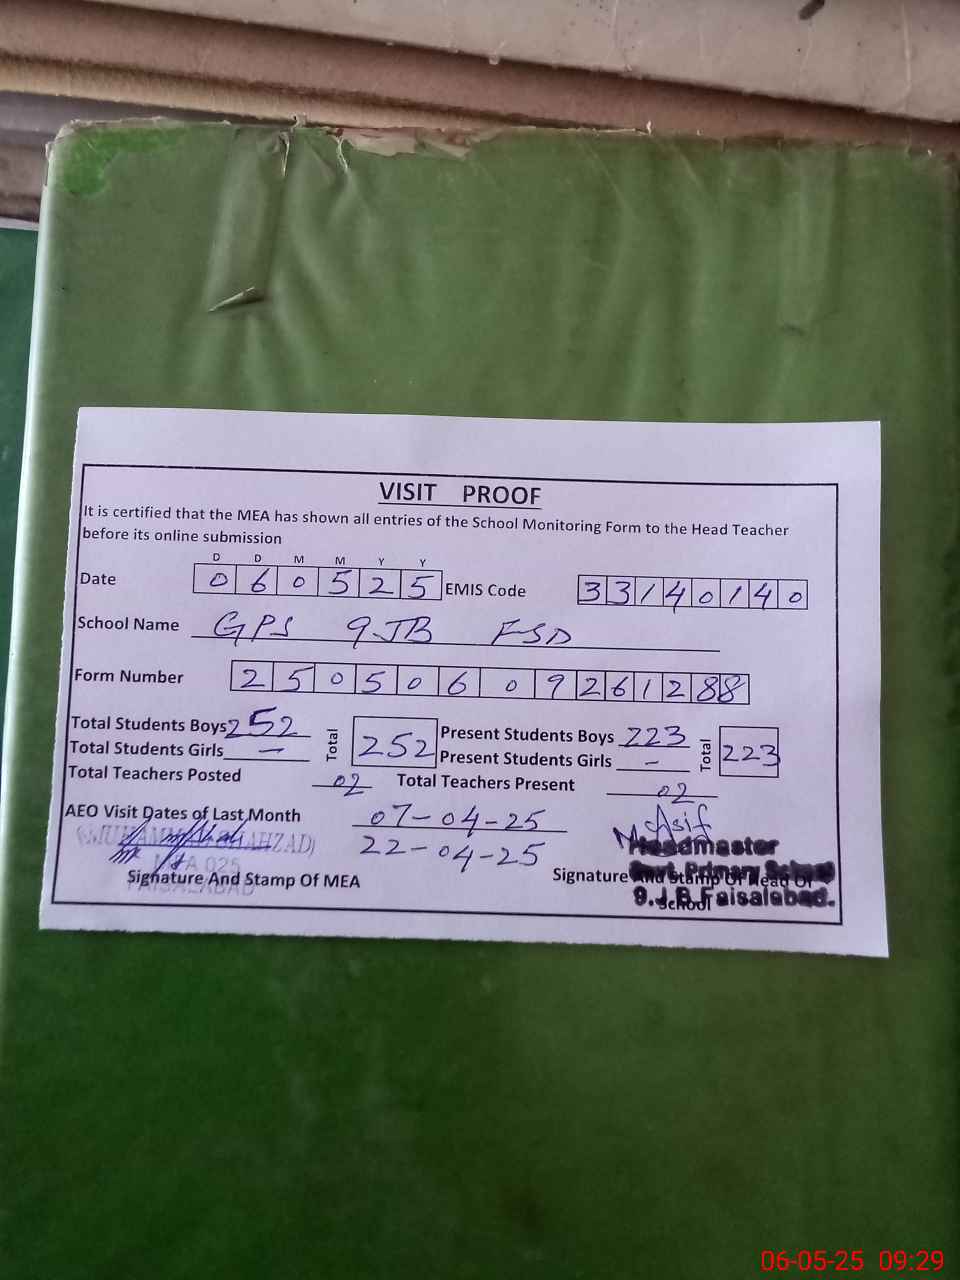 VISIT PROOF
It is certified that the MEA has shown all entries of the School Monitoring Form to the Head Teacher
before its online submission
D D M M Y Y
Date 0 6 0 5 2 5 EMIS Code 3 3 1 4 0 1 4 0
School Name GPS 9JB FSD
Form Number 2 5 0 5 0 6 0 9 2 6 1 2 8 8
Total Students Boys 252 Total 252 Present Students Boys 223 Total 223
Total Students Girls — Present Students Girls —
Total Teachers Posted 02 Total Teachers Present 02
AEO Visit Dates of Last Month 07-04-25
22-04-25
(MUHAMMAD SHAHZAD)
MEA 025
FAISALABAD
Signature And Stamp Of MEA
Asif
Headmaster
Govt. Primary School
9.J.B.Faisalabad.
Signature And Stamp Of Head Of
School
06-05-25 09:29